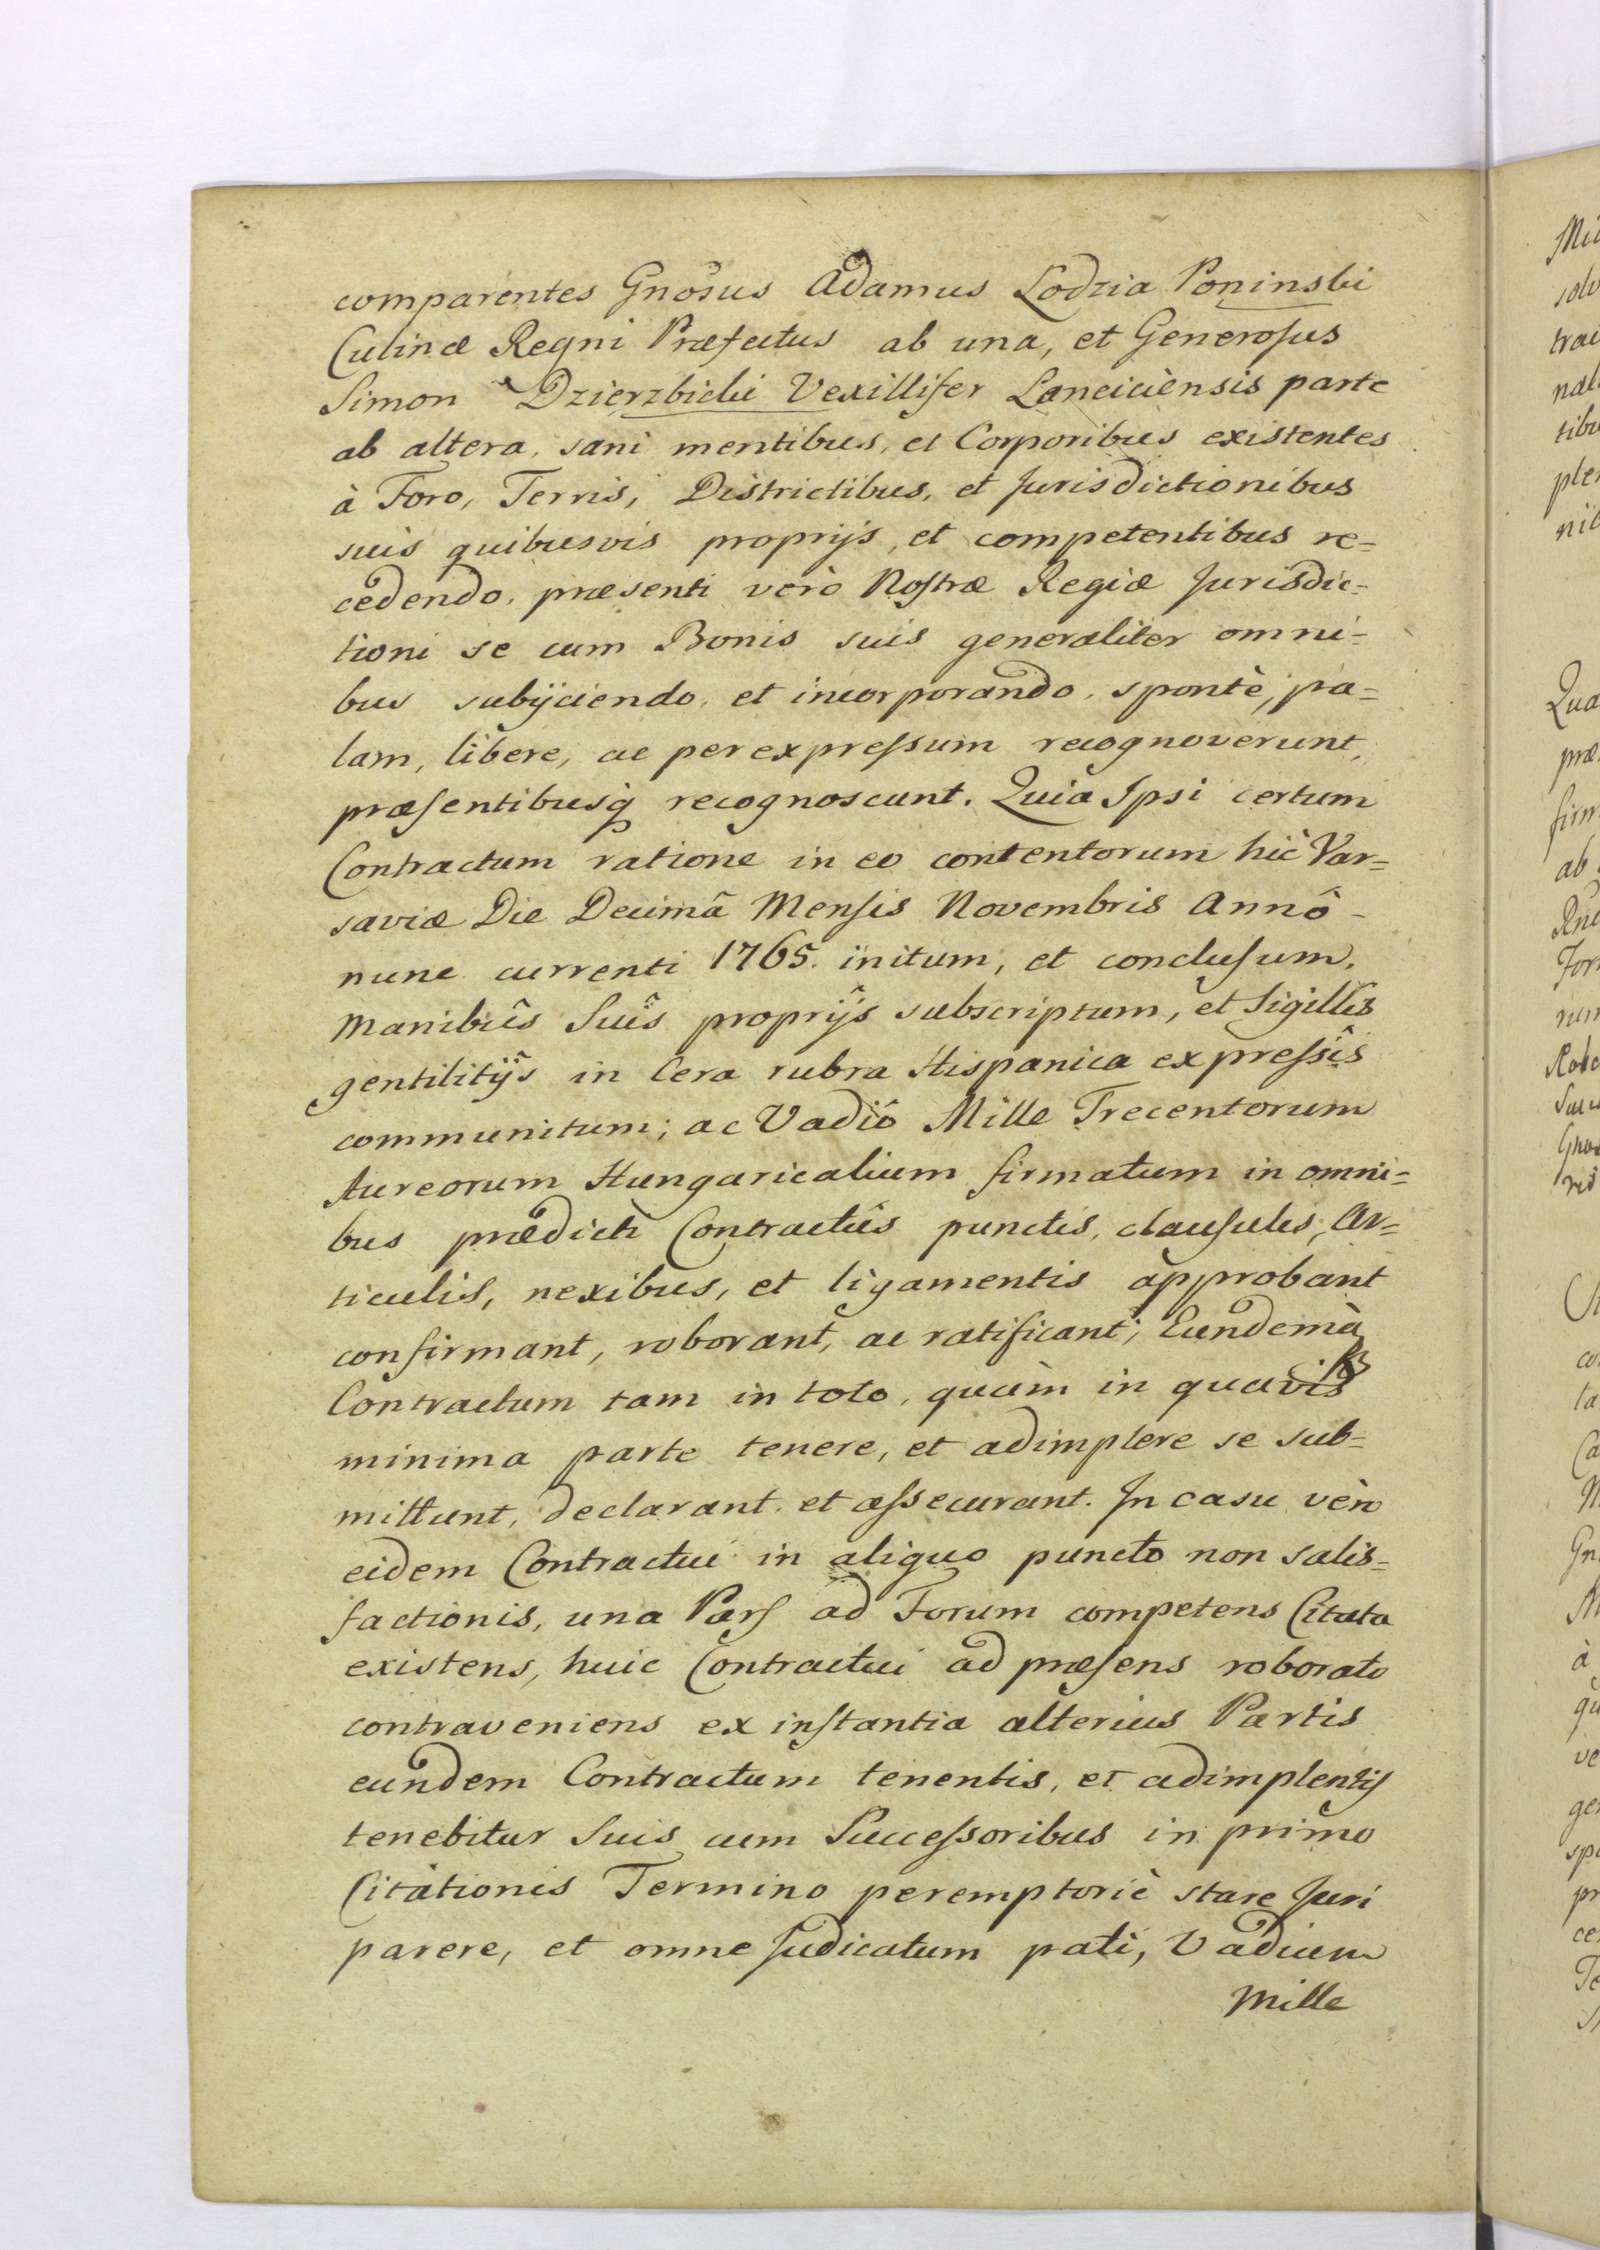 comparentes Gnosus Adamus Lodzia Poninski
Culinæ Regni Præfectus ab una, et Generosus
Simon Dzierzbicki Vexillifer Lanciciensis parte
ab altera, sani mentibus, et Corporibus existentes
à Foro, Terris, Districtibus, et Jurisdictionibus
suis quibusvis proprijs, et competentibus re=
cedendo, præsenti verò Nostræ Regiæ Jurisdic=
tioni se cum Bonis suis generaliter omni=
bus subijciendo, et incorporando, spontè, pa=
lam, libere, ac per expressum recognoverunt,
præsentibusq recognoscunt. Quia Ipsi certum
Contractum ratione in eo contentorum hic Var=
saviæ Die Decimâ Mensis Novembris Annô
nunc currenti 1765. initum, et conclusum,
Manibûs Suîs proprijs subscriptum, et Sigillis
gentilitijs in Cera rubra Hispanica expressîs
communitum; ac Vadiô Mille Trecentorum
Aureorum Hungaricalium firmatum in omni=
bus prædicti Contractûs punctis, clausulis, Ar=
ticulis, nexibus, et ligamentis approbant
confirmant, roborant, ac ratificant; Eundemq
Contractum tam in toto, quàm in quavis
minima parte tenere, et adimplere se sub=
mittunt, declarant, et assecurant. In casu verò
eidem Contractui in aliquo puncto non satis=
factionis, una Pars ad Forum competens Citata
existens, huic Contractui ad præsens roborato
contraveniens ex instantia alterius Partis
eundem Contractum tenentis, et adimplentis
tenebitur Suis cum Successoribus in primo
Citationis Termino peremptoriè stare Juri
parere, et omne Judicatum pati, Vadium
Mille